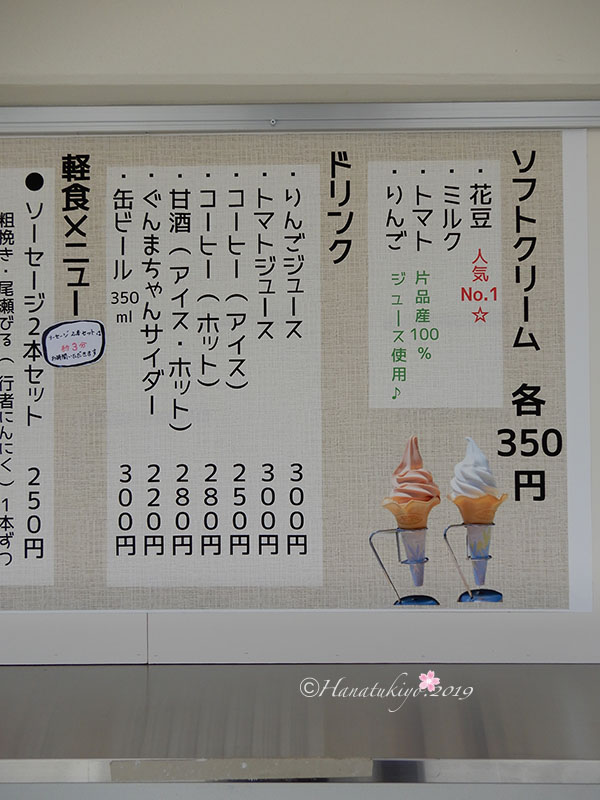 ソフトクリーム 各350円
・花豆 人気No.1☆
・ミルク
・トマト 片品産100%
・りんご ジュース使用♪
ドリンク
・りんごジュース 300円
・トマトジュース 300円
・コーヒー(アイス) 250円
・コーヒー(ホット) 280円
・甘酒(アイス・ホット) 280円
・ぐんまちゃんサイダー 220円
・缶ビール 350ml 300円
軽食メニュー
ソーセージ2本セットは
約3分
お時間いただきます
●ソーセージ2本セット 250円
粗挽き・尾瀬びる(行者にんにく)1本ずつ
©Hanatukiyo.2019